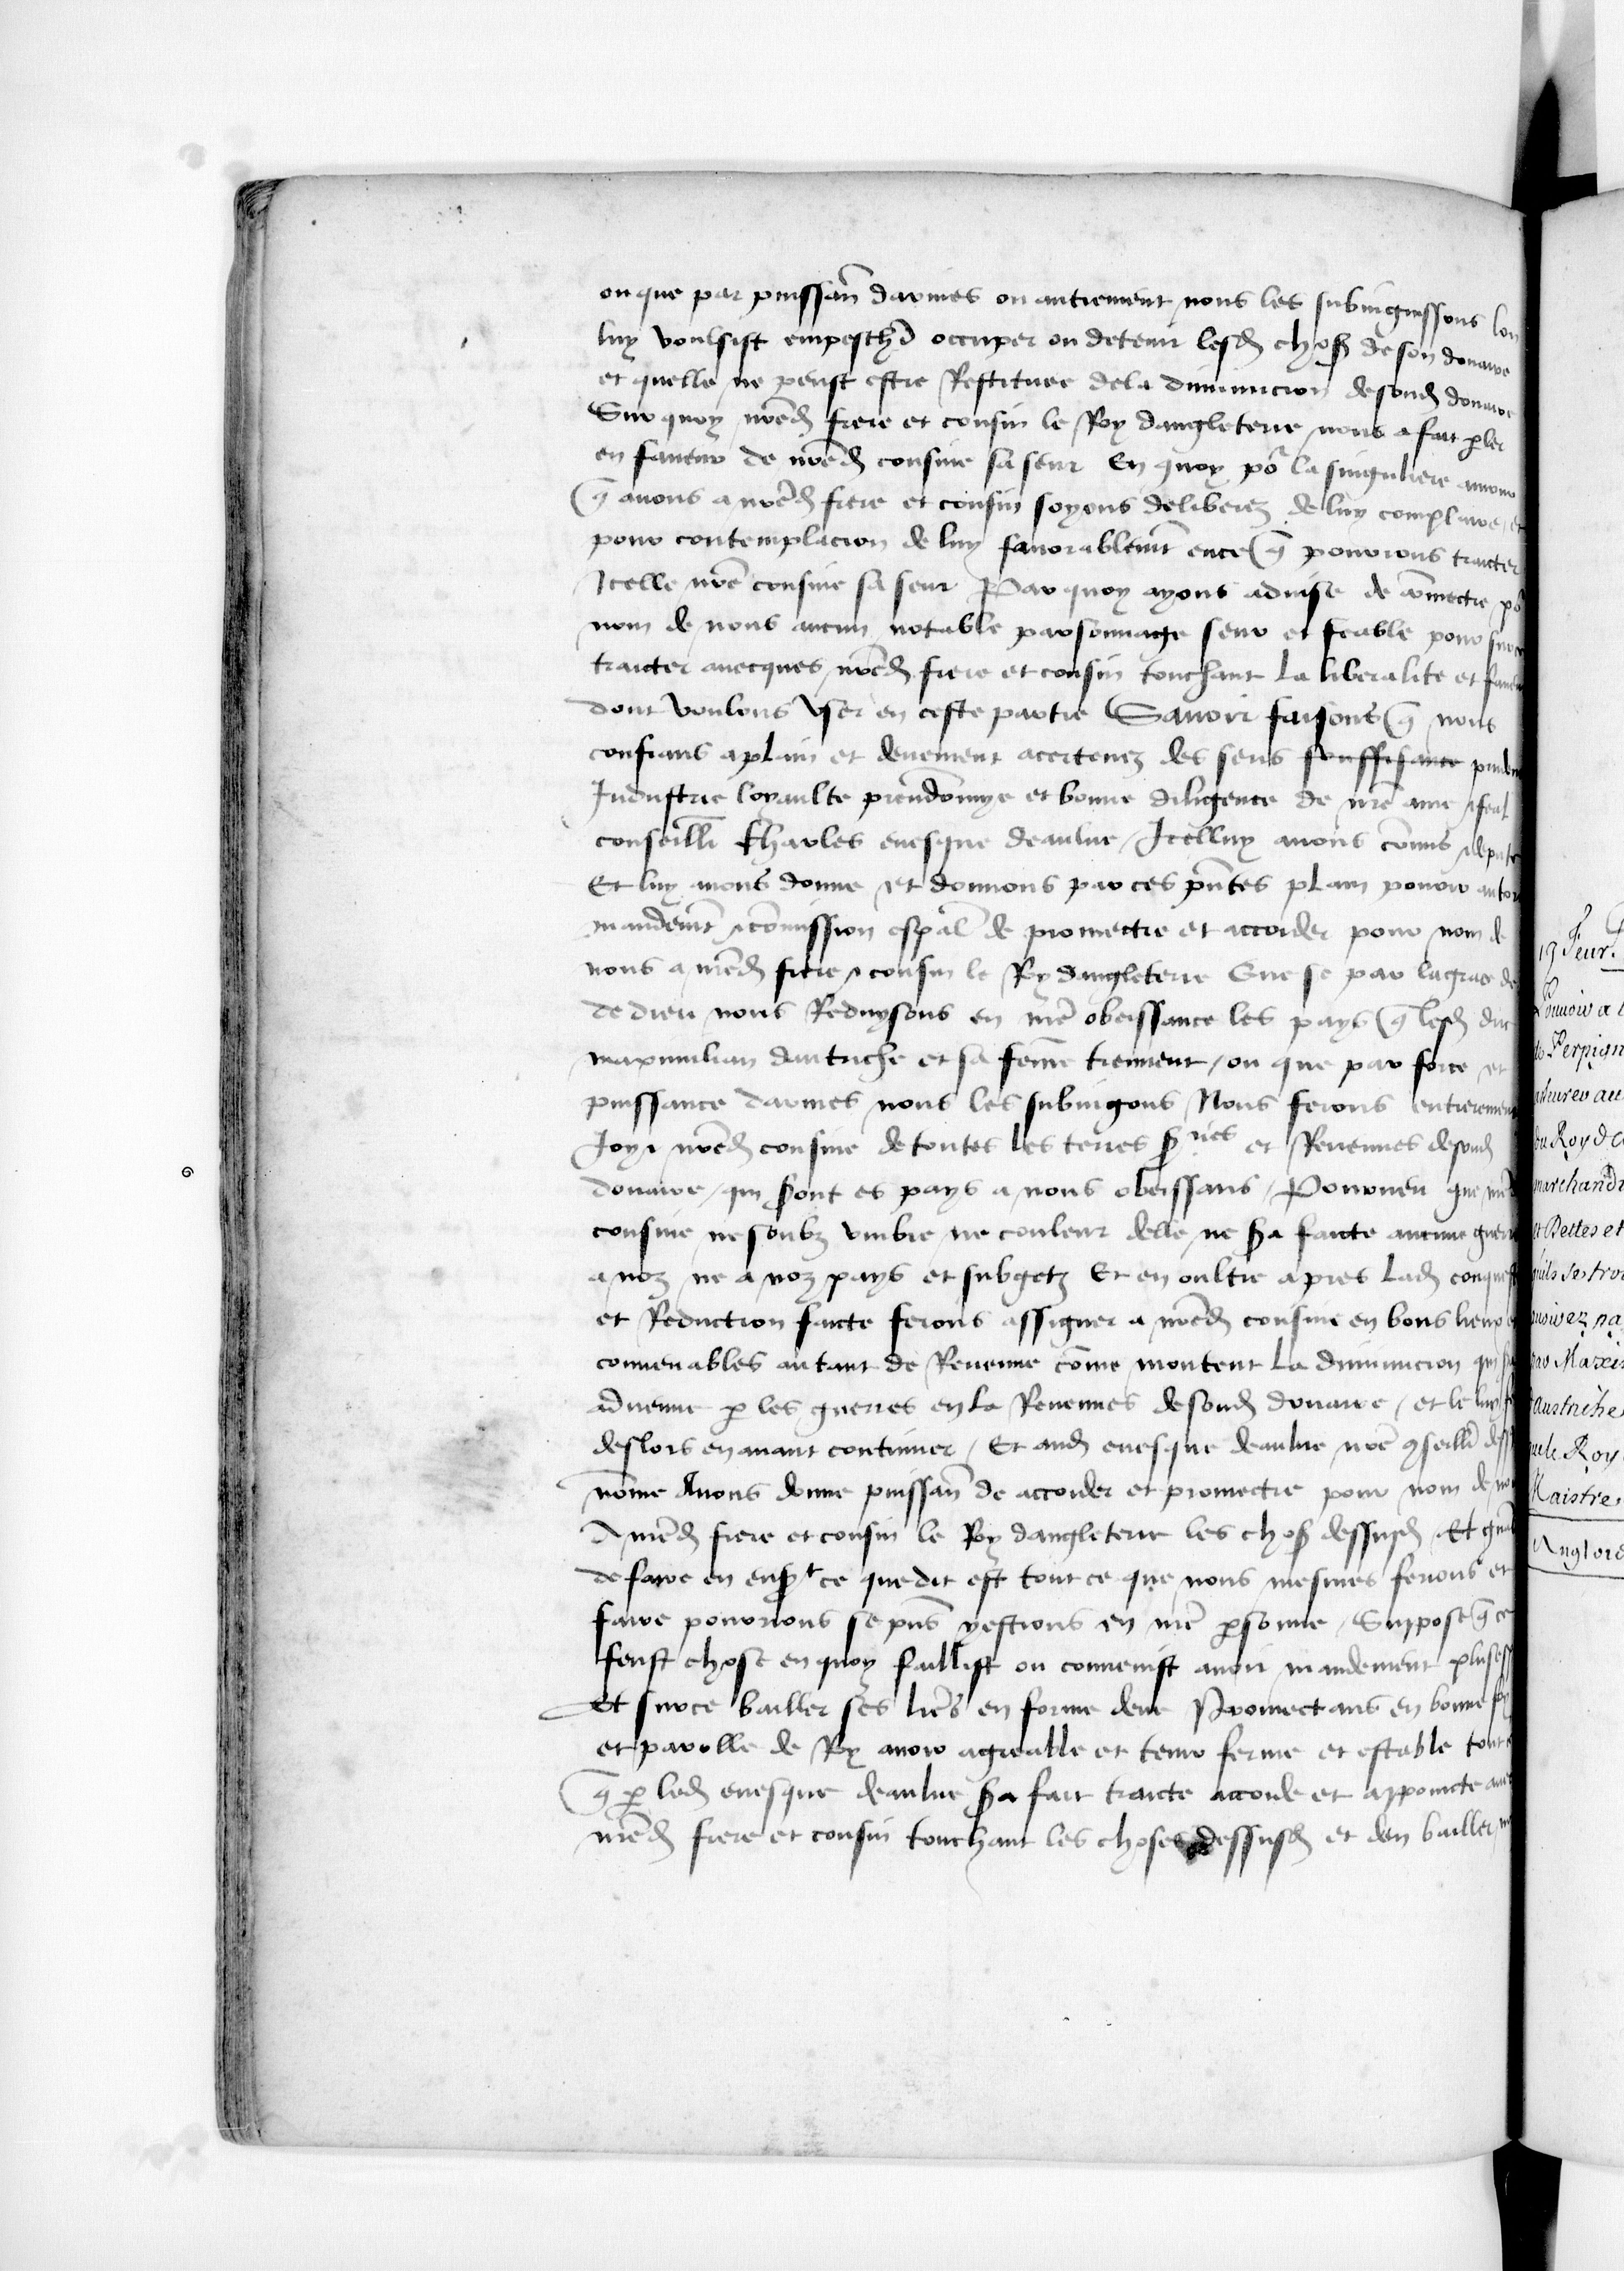 ou que par puissan̄ darmes ou autrement nous les subiuguissons lon
luy voulsist empeschr̄ occuper ou detenir lesd choss de son douaire
et quelle ne peust estre Restituee dela diminucion desond douaire
Sur quoy nr̄ed frere et cousin le Roy dangleterre nous a fait pler
en faueur de nr̄ed cousine sa seur En quoy po᷑ la singuliere amour
q̄ auons a nr̄ed frere et cousin soyons deliberez de luy complaire et
pour contemplacion de luy fauorablemt̄ en ce q̄ pourrons traicter
Icelle nr̄e cousine sa seur Par quoy ayons aduise de cōmectre po᷑
nom de nous aucun notable parsonnage seur et feable pour sur ce
traicter auecques nr̄ed frere et cousin touchant la liberalite et faueur
dont voulons vser en ceste partie Sauoir faisons q̄ nous
confians a plain et deuement acertenez des sens souffisance
Industrie loyaulte preudōmye et bonne diligence de nr̄e ame & feal
conseillr̄ Charles euesque deaulne Icelluy auons cōmis & depute
Et luy auons donne et donnons par ces pn̄tes plain pouoir
mandemt̄ & cōmission espāl de promectre et accorder pour nom de
nous a nr̄ed frere & cousin le Roy dangleterre Que se par la grace de
de dieu nous Reduysons en nr̄e obeissance les pays q̄ lesd duc
maximilian daustriche et sa fem̄e tiennent ou que par force et
puissance darmes nous les subiugons Nous ferons entierement
Joyr nr̄ed cousine de toutes les terres sries et Reuenues desond
douaire qui sont es pays a nous obeissans Pourueu que nr̄ed
cousine ne soubz vmbre ne couleur delle ne sa faicte aucune guerre
a noz ne a noz pays et subgetz Et en oultre apres lad conqueste
et Reduction faicte ferons assigner a nr̄ed cousine en bons lieux et
conuenables autant de Reuenue cōme montent la diminucion qui
aduenue p les guerres en la Reuenues desond douaire et le luy
deslors en auant continuer Et aud euesque deaulne nr̄e gseillr̄
nōme Auons donne puissan̄ de accorder et promectre pour nom de
A nr̄ed frere et cousin le Roy dangleterre les choss dessusd Et
de faire en ce que dit est tout ce que nous mesmes ferions et
faire pourrions se pn̄s y estions en nr̄e psonne Suppose q̄ ce
feust chose en quoy faillist ou conuenist auoir mandement plus
Et sur ce bailler ses lr̄es en forme deue Promectans en bonne foy
et parolle de Roy auoir agreable et tenir ferme et estable tout
q̄ p led euesque deaulne sa fait traicte accorde et appoincte
nr̄ed frere et cousin touchant les choses dessusd et den bailler
19 Feur.
Pouuoir a
de Perpign
du Roy d
marchand
et Dettes et
par Maxi
austriche
que le Roy
Maistre
Anglois